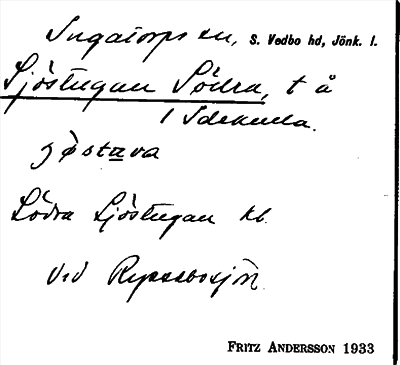 Ingatorps sn, S. Vedbo hd, Jönk. l.
Sjöstugan Södra, t å
1 Idekulla.
Södra Sjöstugan kb.
vid
FRITZ ANDERSSON 1933